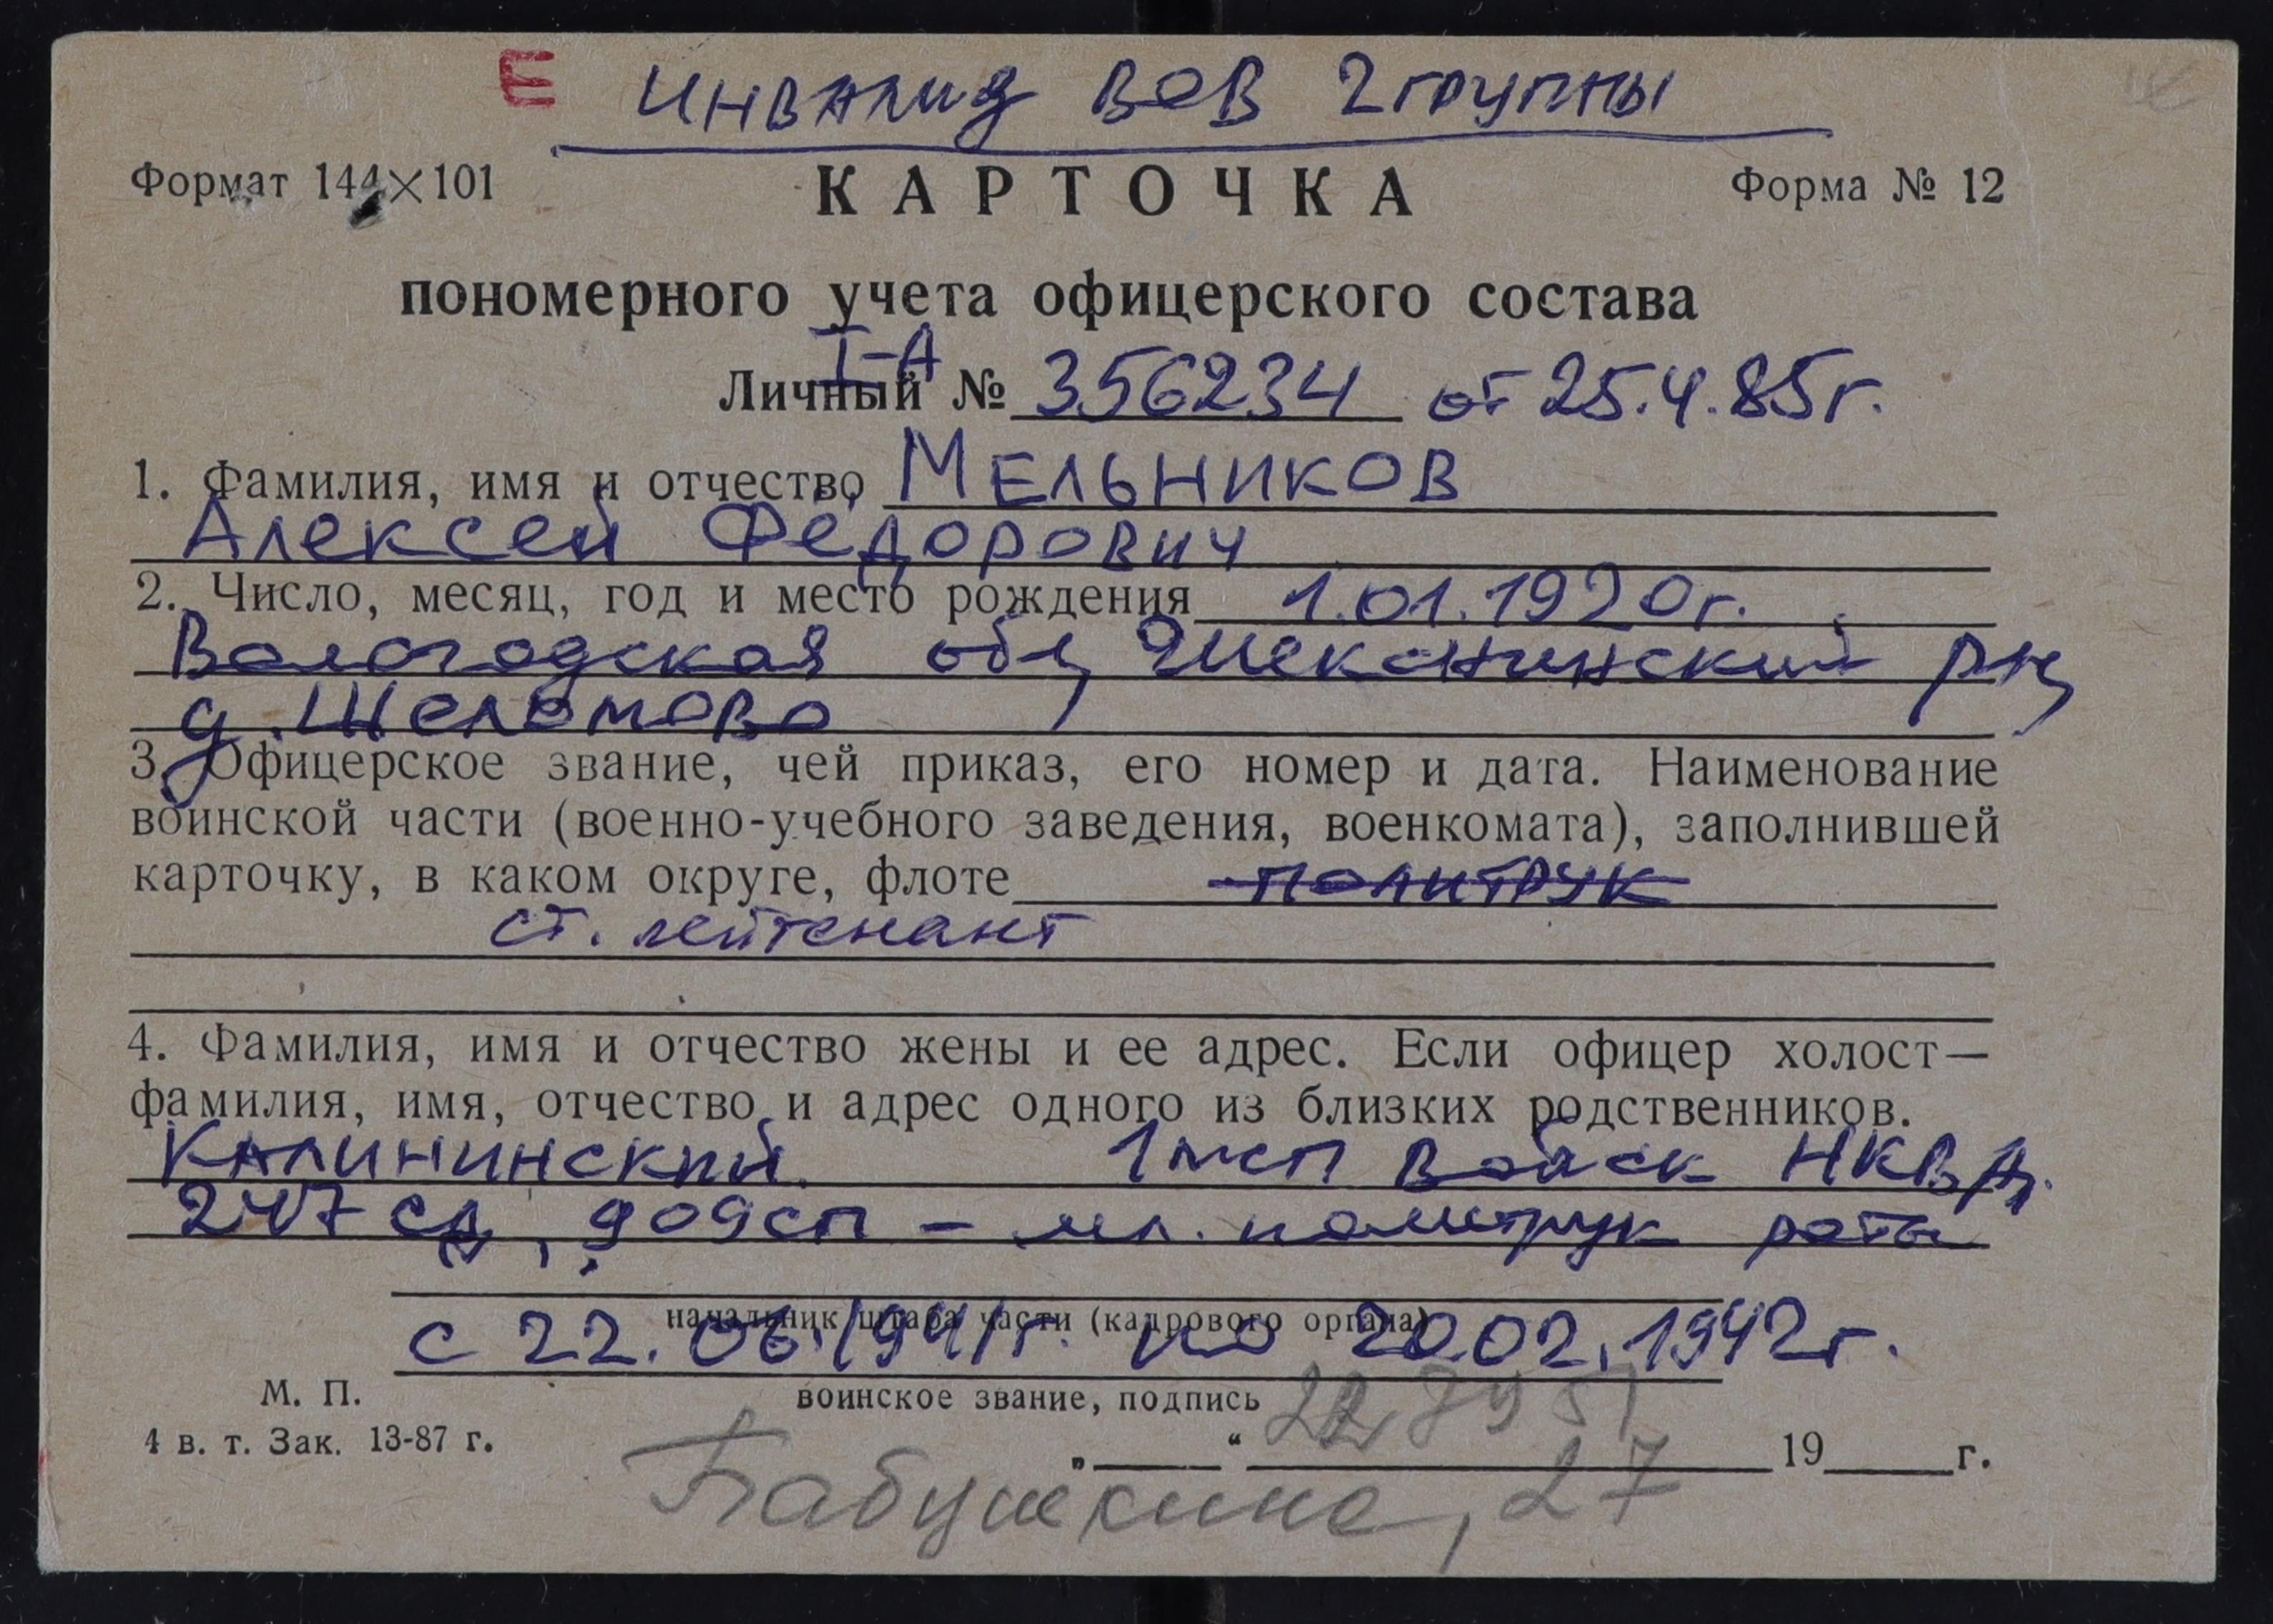 Е Инвалид ВОВ 2 группы
Формат 144×101 КАРТОЧКА Форма № 12
пономерного учета офицерского состава
I-А
Личный № 356234 от 25.4.85г.
1. Фамилия, имя и отчество Мельников
Алексей Фёдорович
2. Число, месяц, год и место рождения 1.01.1920г.
Вологодская обл,
д. Шеломово
3. Офицерское звание, чей приказ, его номер и дата. Наименование
воинской части (военно-учебного заведения, военкомата), заполнившей
карточку, в каком округе, флоте политрук
ст. лейтенант
4. Фамилия, имя и отчество жены и ее адрес. Если офицер холост—
фамилия, имя, отчество и адрес одного из близких родственников.
Калининский 1мсп войск НКВД.
247 сд, 909сп – мл. политрук роты
начальник штаба части (кадрового органа)
с 22.06.1941г. по 20.02.1942г.
М. П. воинское звание, подпись
4 в. т. Зак. 13-87 г. „ “ 19 г.
Бабушкина, 27